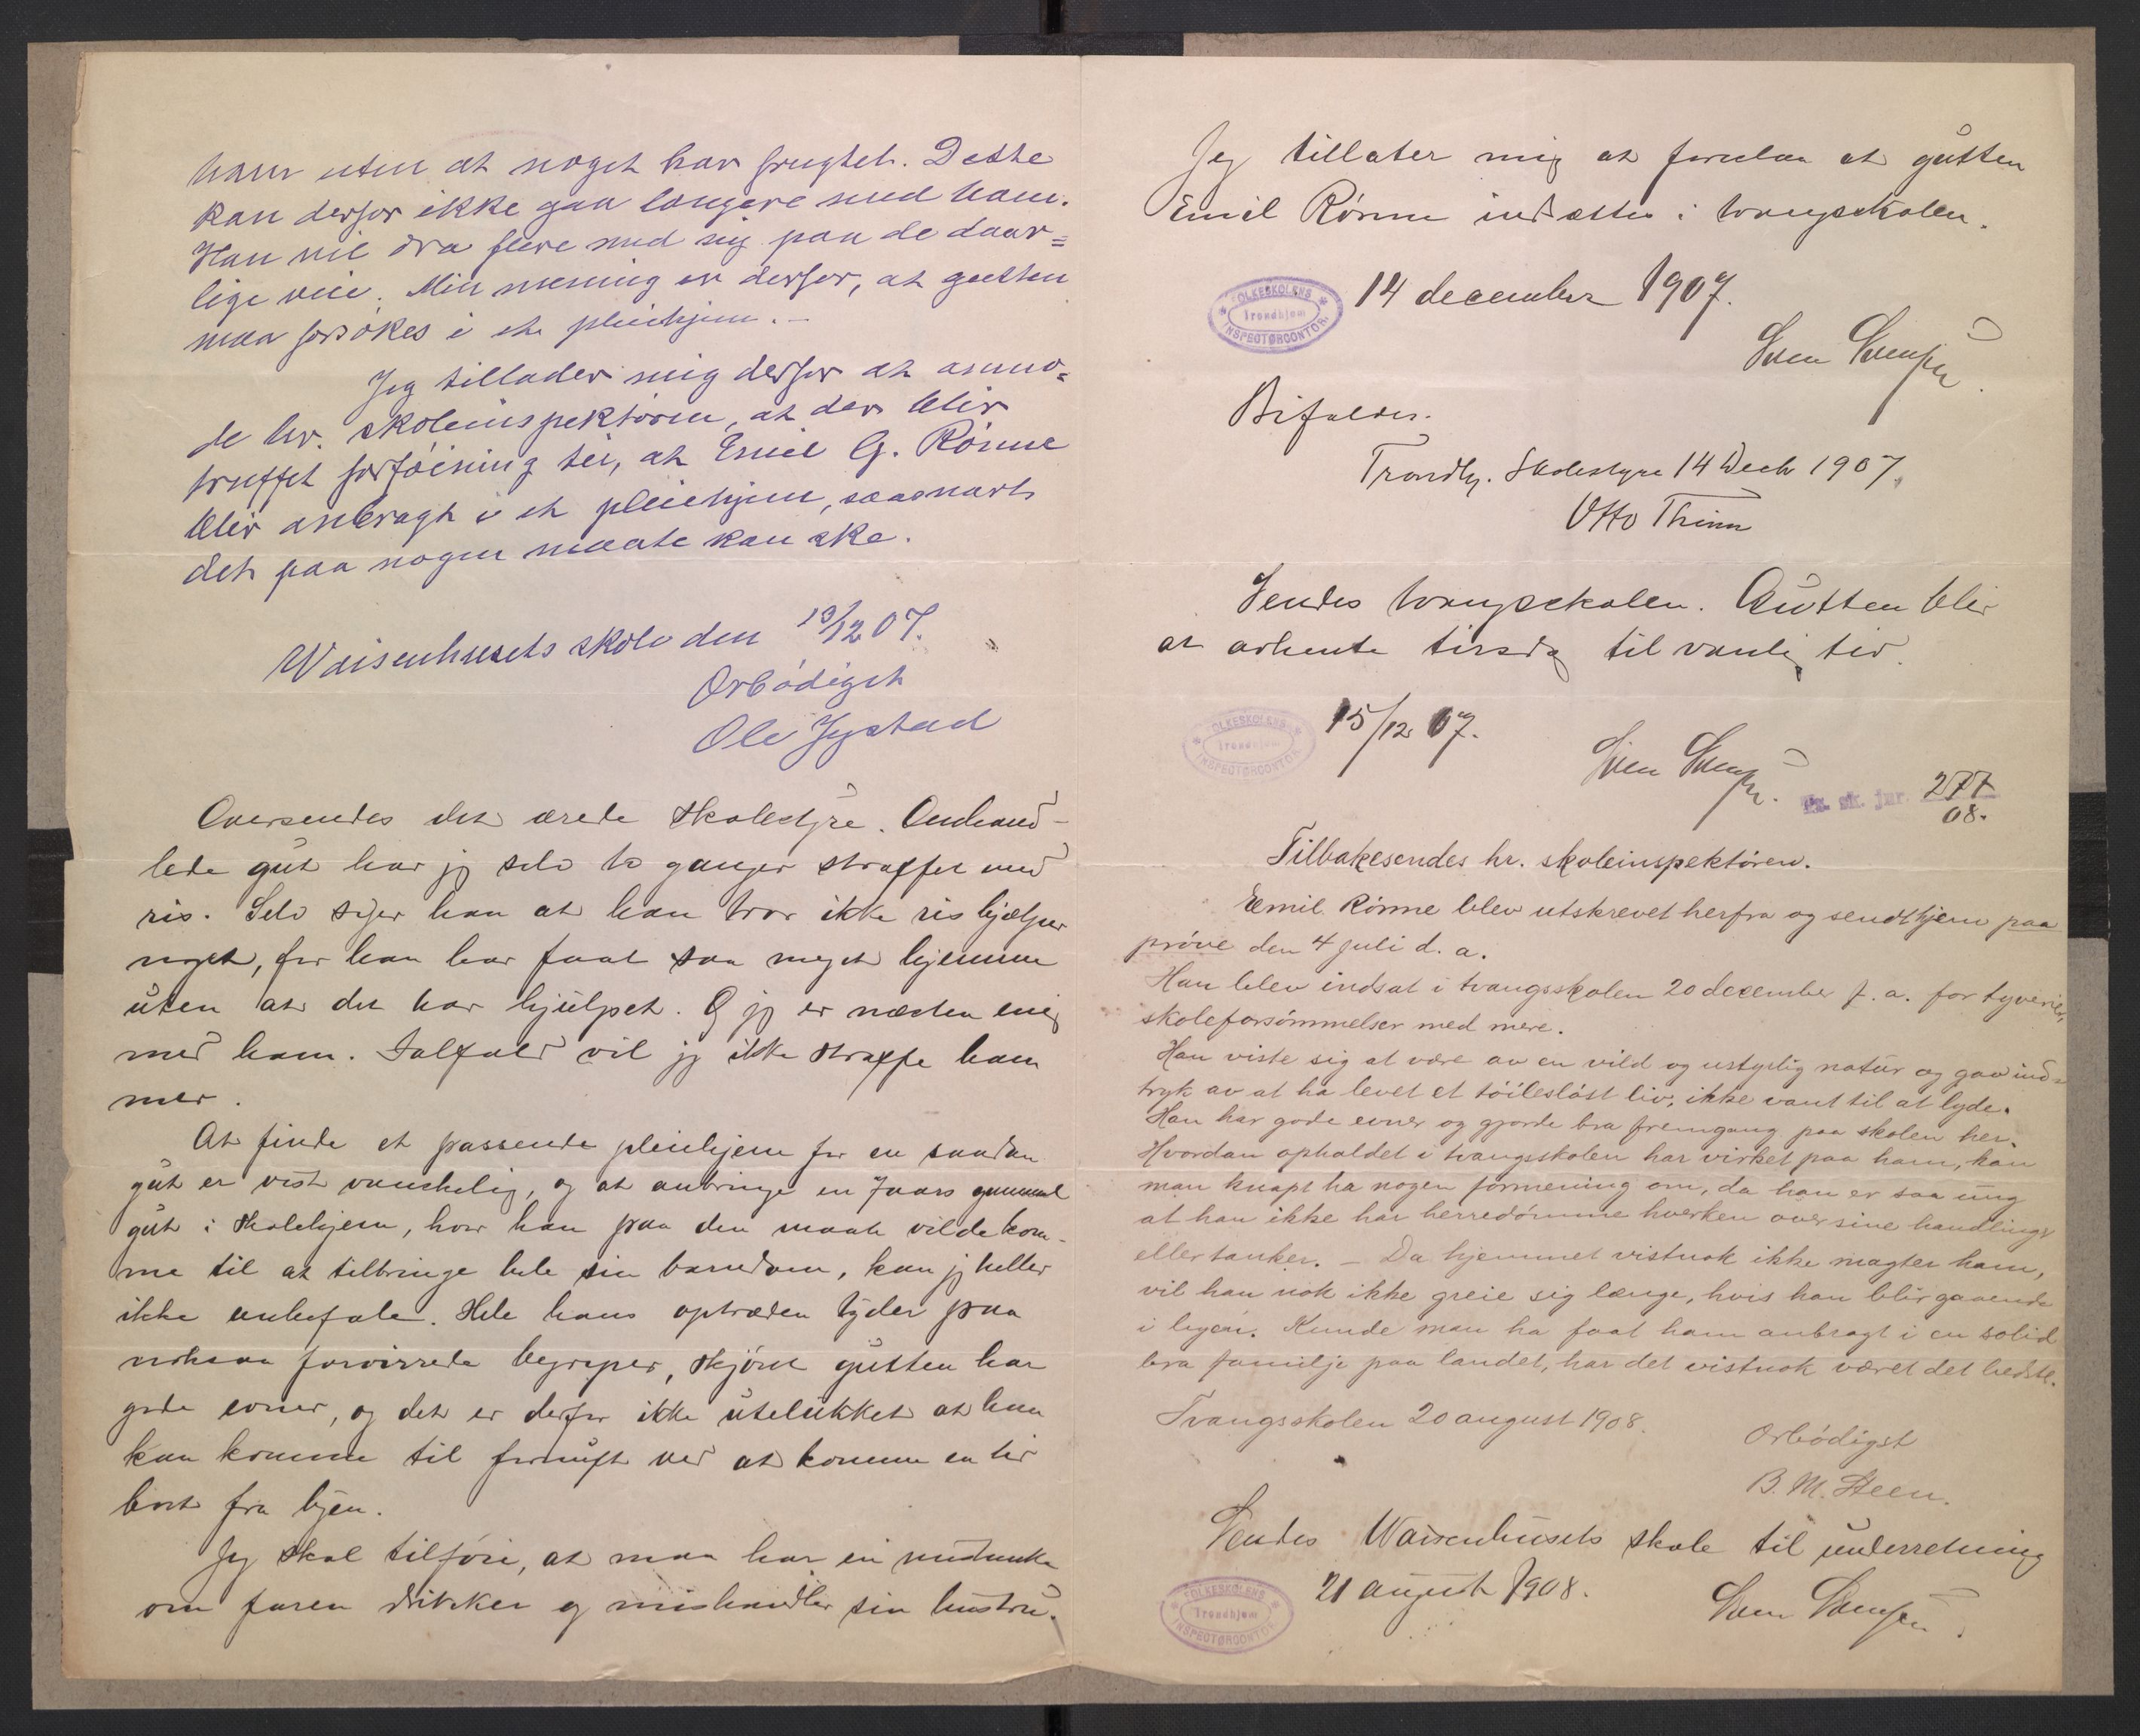 ham uten at noget har frugtet. Dette
kan derfor ikke gaa længere med ham.
Han vil dra flere med sig paa de daar=
lige veie. Min mening er derfor, at gutten
maa forsøkes i et pleiehjem. —
Jeg tillader mig derfor at anmo-
de hr. skoleinspektøren, at der blir
truffet forføining til, at Emil G. Rönne
blir anbragt i et pleiehjem, saasnart
det paa nogen maate kan ske.
Waisenhusets skole den 13/12 07.
Ærbödigst
Ole Jystad
Oversendes det ærede skolestyre. Omhand-
lede gut har jeg selv to ganger straffet med
ris. Selv siger han at han tror ikke ris hjælper
noget, for han har faat saa meget hjemme
uten at det har hjulpet. Og jeg er næsten enig
med ham. Ialfald vil jeg ikke straffe ham
mer.
At finde et passende pleiehjem for en saadan
gut er vist vanskelig, og at anbringe en 7 aars gammel
gut i skolehjem, hvor han paa den maate vilde kom-
me til at tilbringe hele sin barndom, kan jeg heller
ikke anbefale. Hele hans optræden tyder paa
noksaa forvirrede begreper, skjönt gutten har
gode evner, og det er derfor ikke utelukket at han
kan komme til fornuft ved at komme en tid
bort fra byen.
Jeg skal tilföie, at man har en mistanke
om faren drikker og mishandler sin hustru.
Jeg tillater mig at foreslaa at gutten
Emil Rönne indsættes i tvangsskolen.
FOLKESKOLENS Trondhjem INSPECTØRCONTOR.
14 december 1907.
Bifaldes.
Trondhj. Skolestyre 14 Decbr 1907.
Otto Thinn
Sendes tvangsskolen. Gutten blir
at avhente tirsdag til vanlig tid.
FOLKESKOLENS Trondhjem INSPECTØRCONTOR.
15/12 07.
jnr. 277
08.
Tilbakesendes hr. skoleinspektören.
Emil Rönne blev utskrevet herfra og sendt hjem paa
pröve den 4 juli d. a.
Han blev indsat i tvangsskolen 20 december f. a. for tyverier,
skoleforsömmelser med mere.
Han viste sig at være av en vild og ustyrlig natur og gav ind=
tryk av at ha levet et töilesløst liv, ikke vant til at lyde.
Han har gode evner og gjorde bra fremgang paa skolen her.
Hvordan opholdet i tvangsskolen har virket paa ham, kan
man knapt ha nogen formening om, da han er saa ung
at han ikke har herredömme hverken over sine handlinger
eller tanker. — Da hjemmet vistnok ikke magter ham,
vil han nok ikke greie sig længe, hvis han blir gaaende
i byen. Kunde man ha faat ham anbragt i en solid
bra familje paa landet, har det vistnok været det bedste.
Tvangsskolen 20 august 1908.
Ærbödigst
B. M. Steen.
Sendes Waisenhusets skole til underretning
FOLKESKOLENS Trondhjem INSPECTØRCONTOR.
21 august 1908.